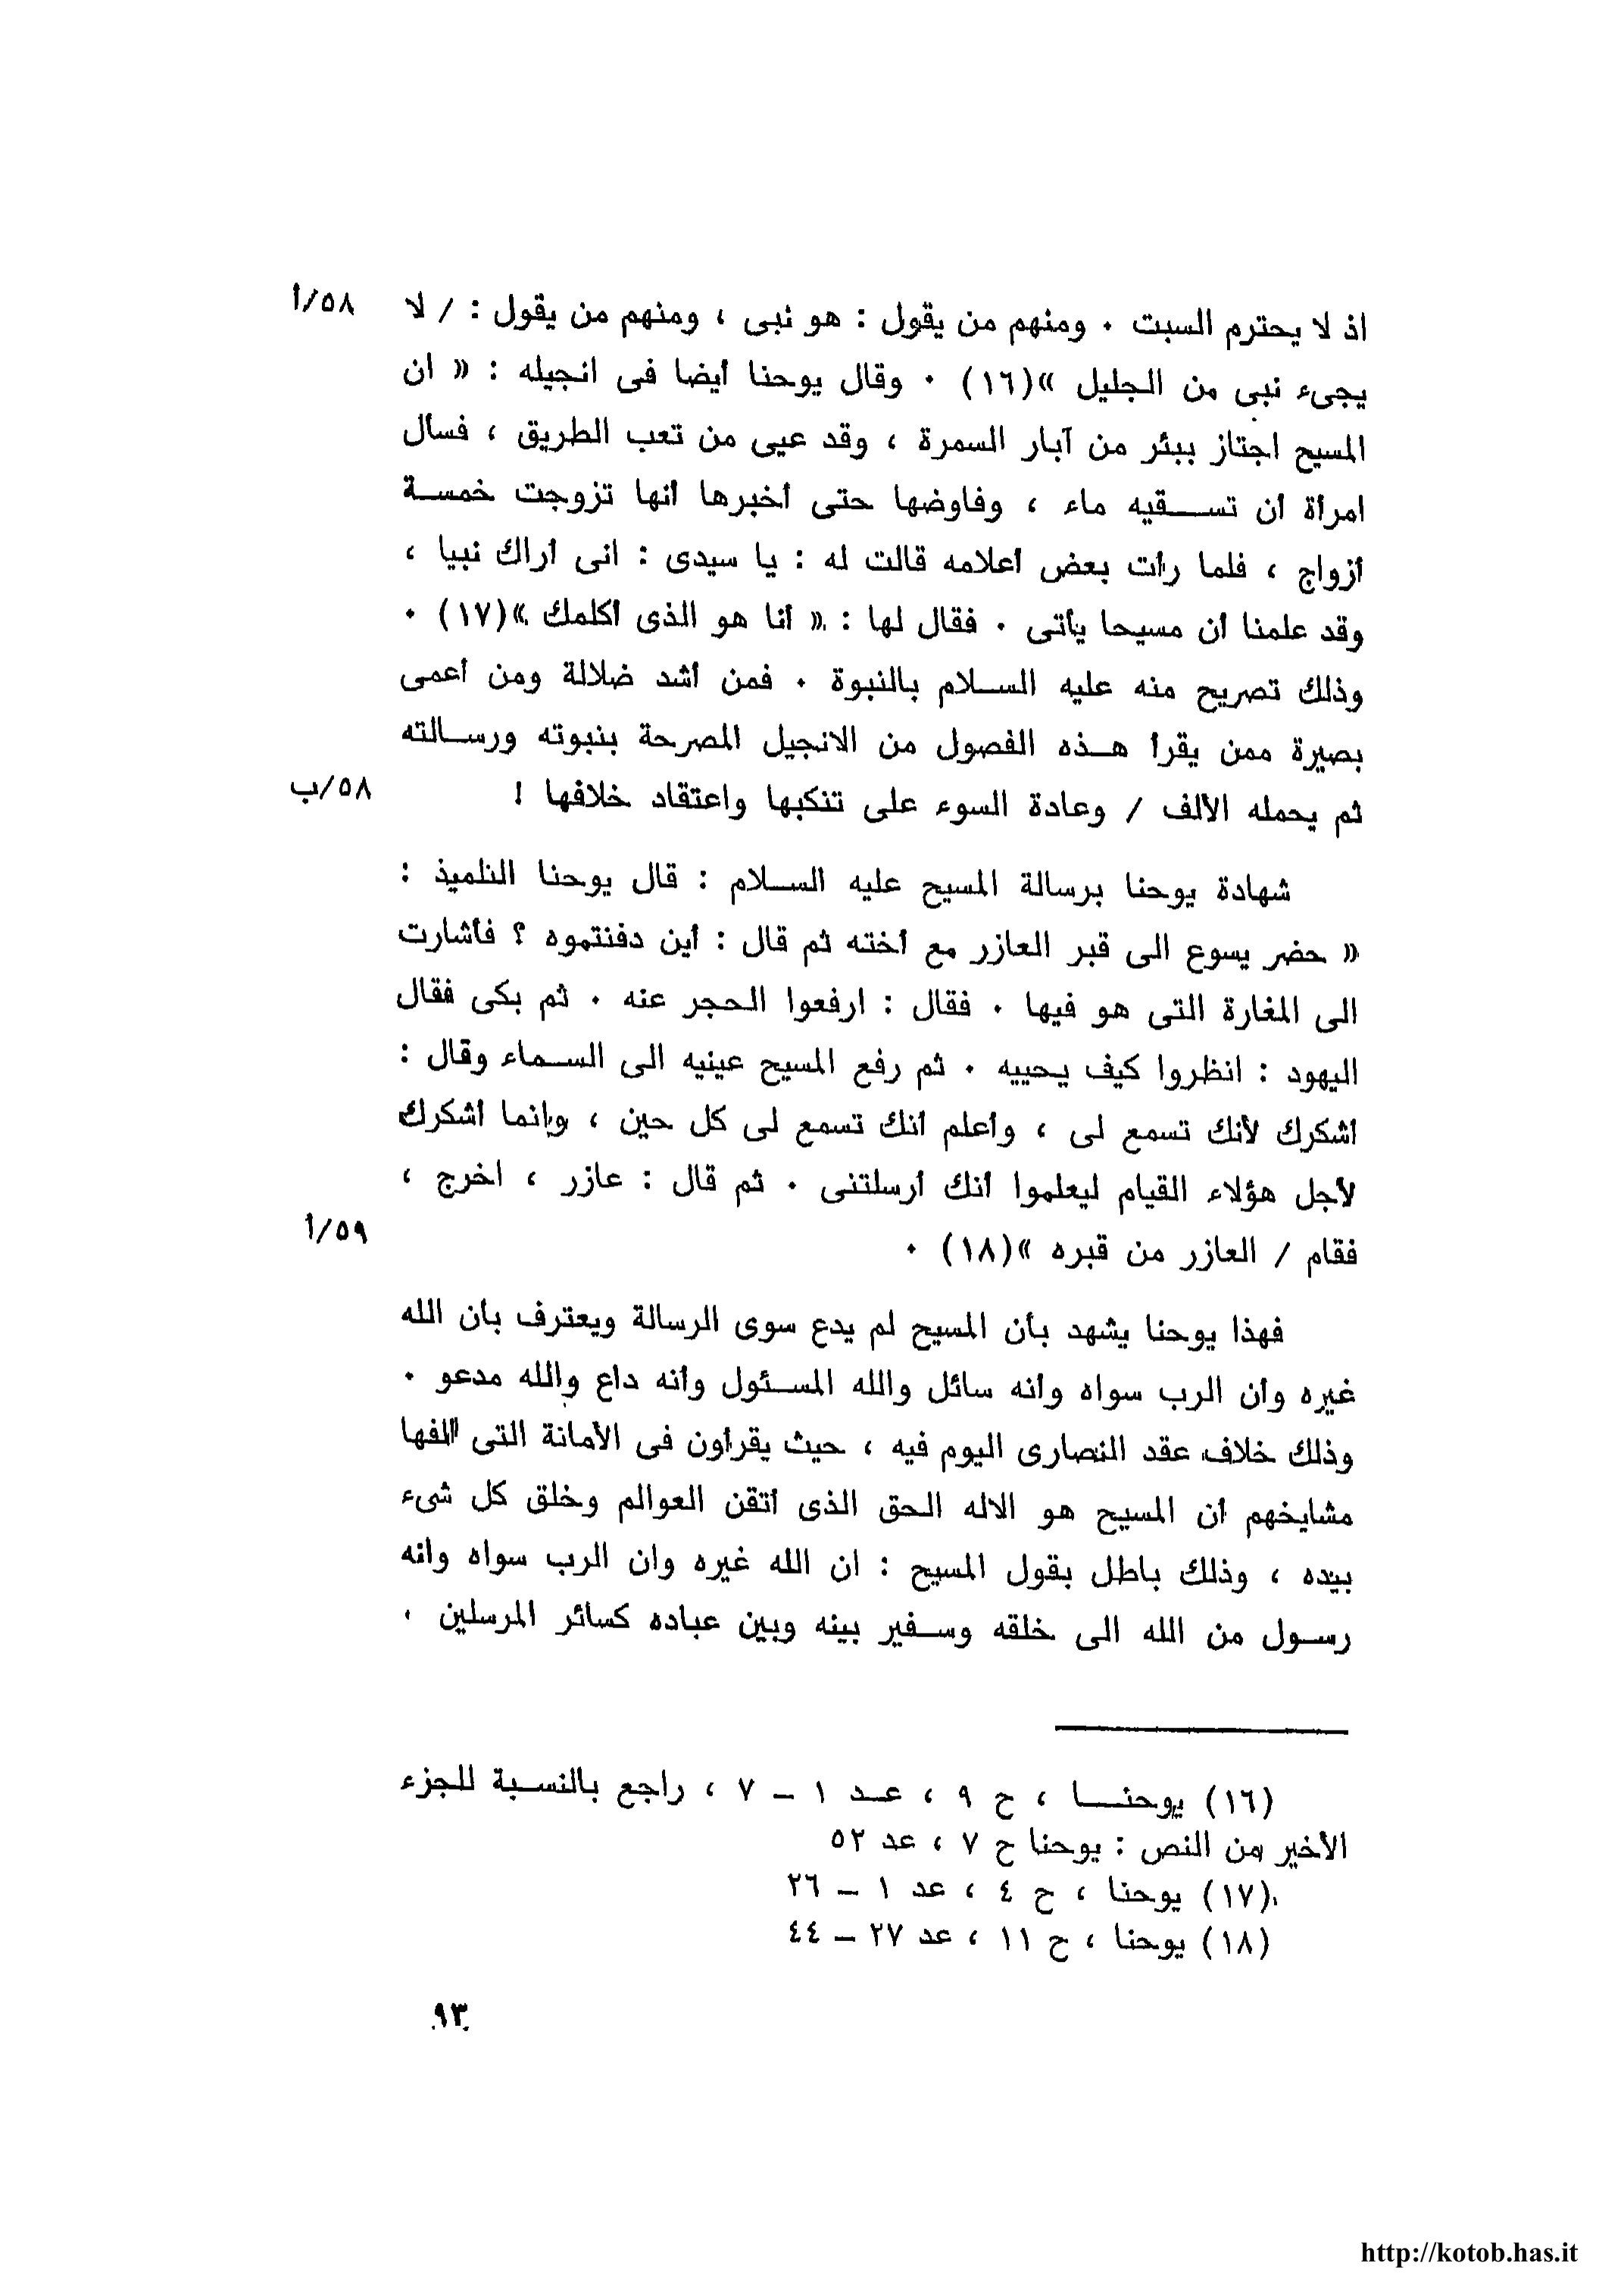 اذ لا يحترم السبت ٠ ومنهم من يقول : هو نبى ، ومنهم من يقول : / لا ٥٨/أ
يجىء نبى من الجليل »(١٦) ٠ وقال يوحنا أيضا فى انجيله : « ان
المسيح اجتاز ببئر من آبار السمرة ، وقد عيى من تعب الطريق ، فسأل
امرأة أن تســقيه ماء ، وفاوضها حتى أخبرها أنها تزوجت خمســة
أزواج ، فلما رأت بعض أعلامه قالت له : يا سيدى : انى أراك نبيا ،
وقد علمنا أن مسيحا يأتى ٠ فقال لها : « أنا هو الذى أكلمك »(١٧) ٠
وذلك تصريح منه عليه الســلام بالنبوة ٠ فمن أشد ضلالة ومن أعمى
بصيرة ممن يقرأ هــذه الفصول من الانجيل المصرحة بنبوته ورســالته
ثم يحمله الألف / وعادة السوء على تنكبها واعتقاد خلافها ! ٥٨/ب
شهادة يوحنا برسالة المسيح عليه الســلام : قال يوحنا التلميذ :
« حضر يسوع الى قبر العازر مع أخته ثم قال : أين دفنتموه ؟ فأشارت
الى المغارة التى هو فيها ٠ فقال : ارفعوا الحجر عنه ٠ ثم بكى فقال
اليهود : انظروا كيف يحييه ٠ ثم رفع المسيح عينيه الى الســماء وقال :
أشكرك لأنك تسمع لى ، وأعلم أنك تسمع لى كل حين ، وإنما أشكرك
لأجل هؤلاء القيام ليعلموا أنك أرسلتنى ٠ ثم قال : عازر ، اخرج ،
فقام / العازر من قبره »(١٨) ٠ ٥٩/أ
فهذا يوحنا يشهد بأن المسيح لم يدع سوى الرسالة ويعترف بأن الله
غيره وأن الرب سواه وأنه سائل والله المســئول وأنه داع والله مدعو ٠
وذلك خلاف عقد النصارى اليوم فيه ، حيث يقرأون فى الأمانة التى ألفها
مشايخهم أن المسيح هو الاله الحق الذى أتقن العوالم وخلق كل شىء
بيده ، وذلك باطل بقول المسيح : ان الله غيره وان الرب سواه وانه
رســول من الله الى خلقه وســفير بينه وبين عباده كسائر المرسلين ٠
(١٦) يوحنــا ، ح ٩ ، عــد ١ – ٧ ، راجع بالنســبة للجزء
الأخير من النص : يوحنا ح ٧ ، عد ٥٢
(١٧) يوحنا ، ح ٤ ، عد ١ – ٢٦
(١٨) يوحنا ، ح ١١ ، عد ٢٧ – ٤٤
٩٣
http://kotob.has.it